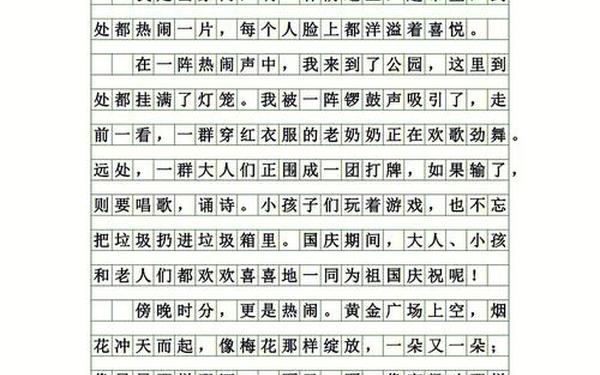 处都热闹一片，每个人脸上都洋溢着喜悦。
在一阵热闹声中，我来到了公园，这里到
处都挂满了灯笼。我被一阵锣鼓声吸引了，走
前一看，一群穿红衣服的老奶奶正在欢歌劲舞。
远处，一群大人们正围成一团打牌，如果输了，
则要唱歌，诵诗。小孩子们玩着游戏，也不忘
把垃圾扔进垃圾箱里。国庆期间，大人、小孩
和老人们都欢欢喜喜地一同为祖国庆祝呢！
傍晚时分，更是热闹。黄金广场上空，烟
花冲天而起，像梅花那样绽放，一朵又一朵；